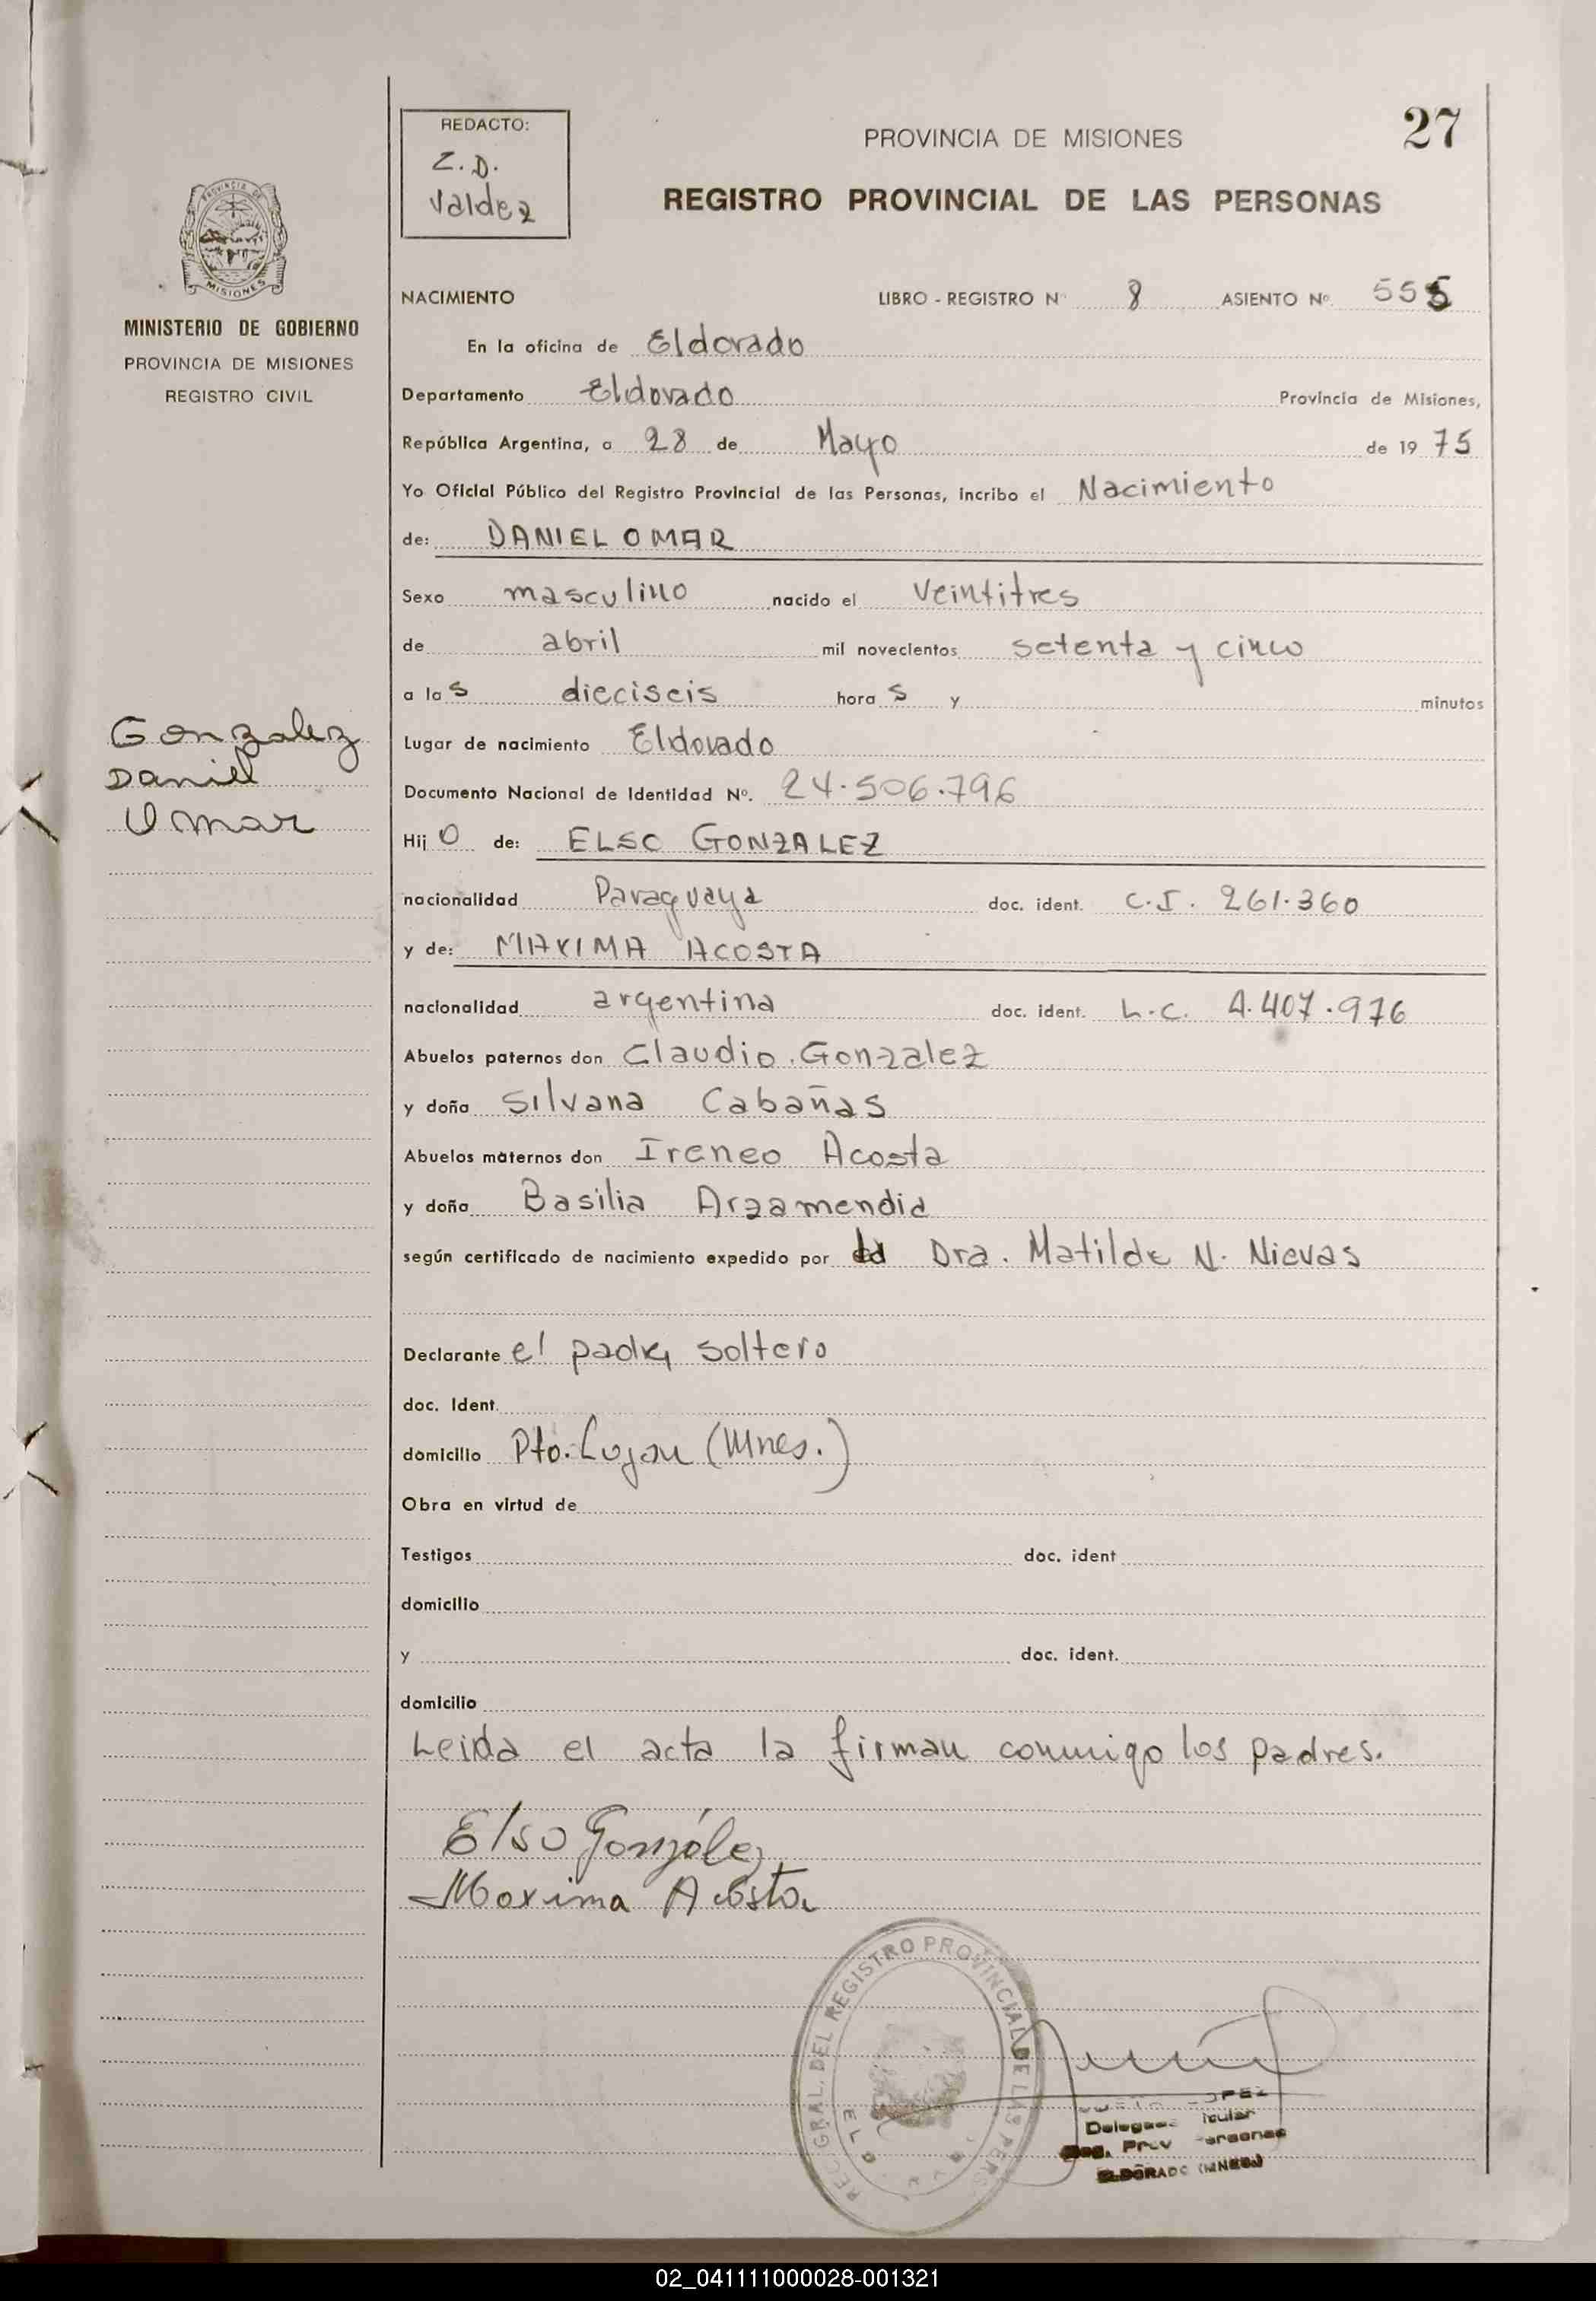 27
REDACTO:
Z. D.
Valdez
PROVINCIA DE MISIONES
REGISTRO PROVINCIAL DE LAS PERSONAS
PROVINCIA DE
MISIONES
MINISTERIO DE GOBIERNO
PROVINCIA DE MISIONES
REGISTRO CIVIL
NACIMIENTO LIBRO - REGISTRO Nº 8 ASIENTO Nº 555
En la oficina de Eldorado
Departamento Eldorado Provincia de Misiones,
República Argentina, a 28 de Mayo de 19 75
Yo Oficial Público del Registro Provincial de las Personas, incribo el Nacimiento
de: DANIEL OMAR
Sexo masculino nacido el veintitres
de abril mil novecientos setenta y cinco
a las dieciseis horas y minutos
Gonzalez
Daniel
Omar
Lugar de nacimiento Eldorado
Documento Nacional de Identidad Nº. 24.506.796
Hijo de: ELSO GONZALEZ
nacionalidad Paraguaya doc. ident. C.I. 261.360
y de: MAXIMA ACOSTA
nacionalidad argentina doc. ident. L.C. 4.407.976
Abuelos paternos don Claudio Gonzalez
y doña Silvana Cabañas
Abuelos maternos don Ireneo Acosta
y doña Basilia Arzamendia
según certificado de nacimiento expedido por Dra. Matilde N. Nievas
Declarante el padre, soltero
doc. Ident.
domicilio Pto. Lujan (Mnes.)
Obra en virtud de
Testigos doc. ident
domicilio
y doc. ident.
domicilio
Leida el acta la firman conmigo los padres.
Elso González
Maxima Acosta
REG. GRAL. DEL REGISTRO PROVINCIAL DE LAS PERS
Reg. Prov Personas
ELDORADO (MNES.)
02_041111000028-001321